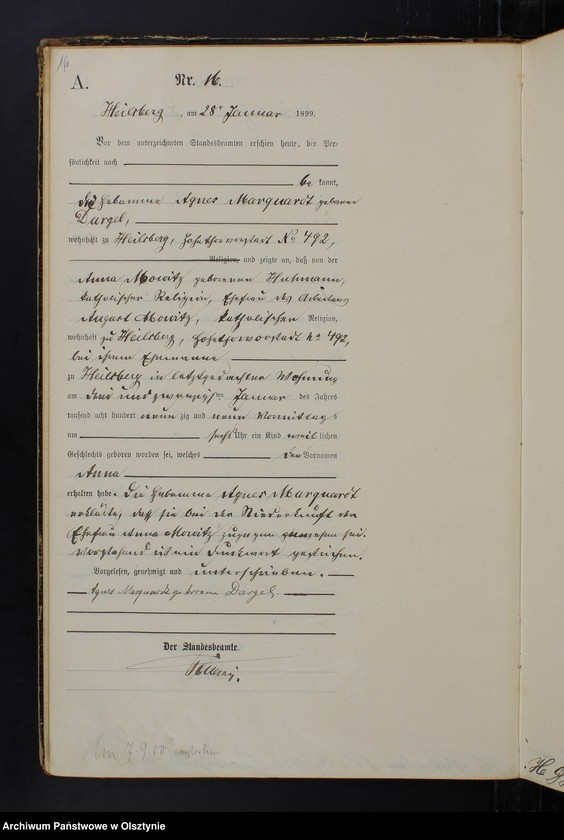 16
A.
Nr. 16.
Heilsberg, am 28t Januar 1899.
Vor dem unterzeichneten Standesbeamten erschien heute, der Per-
sönlichkeit nach
be kannt,
die Hebamme Agnes Marquardt geborene
Dargel,
wohnhaft zu Heilsberg, Hohethorvorstadt No 492,
Religion, und zeigte an, daß von der
Anna Mowitz geborenen Hutmann,
katholischer Religion, Ehefrau des Arbeiters
August Mowitz, katholischer Religion,
wohnhaft zu Heilsberg, Hohethorvorstadt No 492,
bei ihrem Ehemanne
zu Heilsberg in letztgedachter Wohnung
am drei und zwanzigsten Januar des Jahres
tausend acht hundert neun zig und neun Vormittags
um sechs Uhr ein Kind weib lichen
Geschlechts geboren worden sei, welches den Vornamen
Anna
erhalten habe. Die Hebamme Agnes Marquardt
erklärte, daß sie bei der Niederkunft der
Ehefrau Anna Mowitz zugegen gewesen sei.
Vorstehend ist ein Druckwort gestrichen.
Vorgelesen, genehmigt und unterschrieben.
Agnes Marquardt geborene Dargel
Der Standesbeamte.
Am 7.9.00
Archiwum Państwowe w Olsztynie